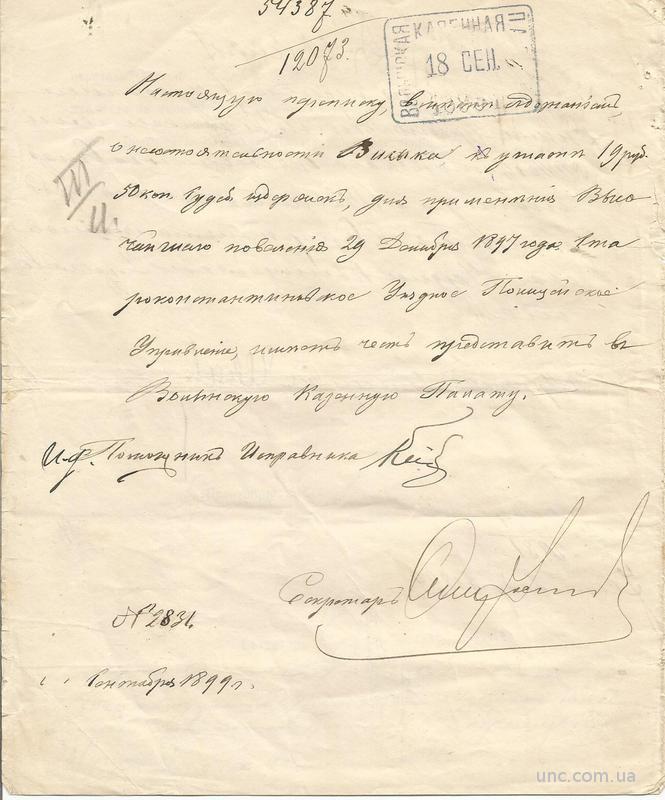 54387
12073.
ВОЛЫНСКАЯ КАЗЕННАЯ П
18 СЕН.
Настоящую переписку, 
о несостоятельности Вилыка, къ уплатѣ 19 руб.
50 коп. для примененія Высо
чайшаго повеленія 29 Декабря 1897 года Ста
роконстантиновское Уѣздное Полицейское
Управленіе, имѣетъ честь представить въ
Волынскую Казенную Палату.
И.ф. Помощникъ Исправника
Секретарь
№ 2831.
Сентября 1899 г.
III
unc.com.ua